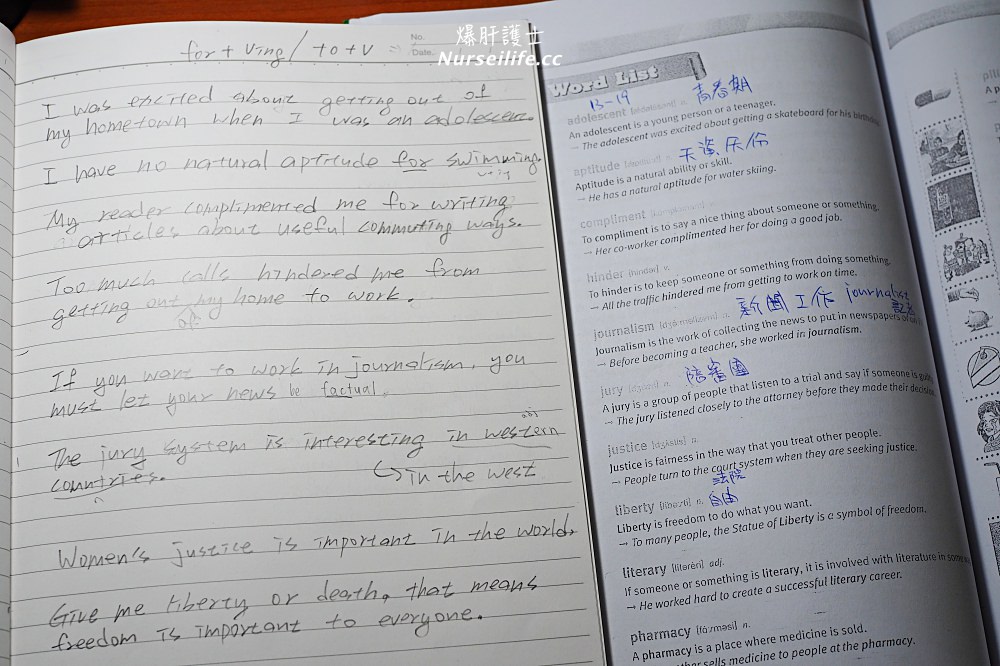 for + Ving / to + V
No.
Date.
爆肝護士
Nurseilife.cc
I was excited about getting out of
my hometown when I was an adolescence.
I have no natural aptitude for swimming.
Ving
My reader complimented me for writing
articles about useful commuting ways.
Too much calls hindered me from
getting out my home to work.
of
If you want to work in journalism, you
must let your news be factual.
The jury system is interesting in western
countries.
in the west
Women's justice is important in the world.
Give me liberty or death, that means
freedom is important to everyone.
Word List
13-19 青春期
adolescent n.
An adolescent is a young person or a teenager.
→ The adolescent was excited about getting a skateboard for his
aptitude n. 天資天份
Aptitude is a natural ability or skill.
→ He has a natural aptitude for water skiing.
compliment
To compliment is to say a nice thing about someone or something.
→ Her co-worker complimented her for doing a good job.
hinder v.
To hinder is to keep someone or something from doing something.
→ All the traffic hindered me from getting to work on time.
journalism 新聞工作 journalist
記者
Journalism is the work of collecting the news to put in newspapers
→ Before becoming a teacher, she worked in journalism.
jury n. 陪審團
A jury is a group of people that listen to a trial and say if someone is
→ The jury listened closely to the attorney before they made their
justice n.
Justice is fairness in the way that you treat other people.
→ People turn to the court system when they are seeking justice.
法院
liberty n. 自由
Liberty is freedom to do what you want.
→ To many people, the Statue of Liberty is a symbol of freedom.
literary adj.
If someone or something is literary, it is involved with literature in some
→ He worked hard to create a successful literary career.
pharmacy n.
A pharmacy is a place where medicine is sold.
sells medicine to people at the pharmacy.